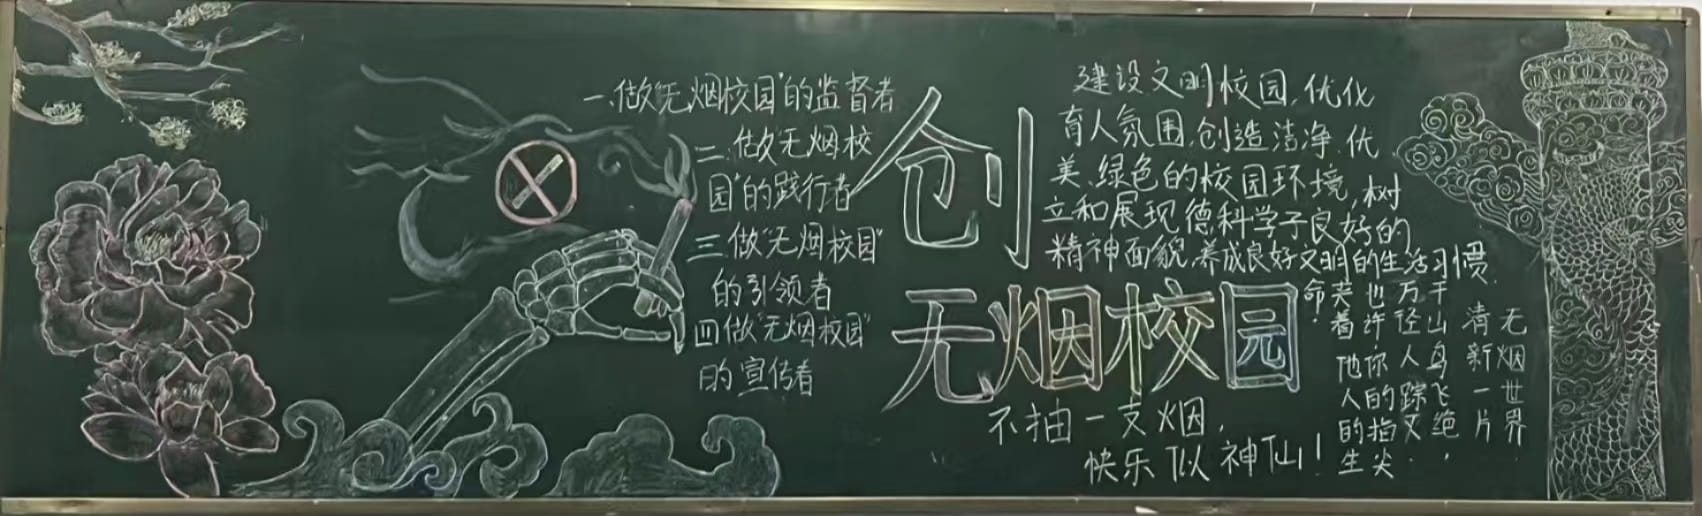 一、做“无烟校园”的监督者
二、做“无烟校
园”的践行者
三、做“无烟校园”
的引领者
四做“无烟校园”
的宣传者
创
无烟校园
不抽一支烟，
快乐似神仙！
建设文明校园，优化
育人氛围，创造洁净、优
美、绿色的校园环境，树
立和展现德科学子良好的
精神面貌，养成良好文明的生活习惯.
无烟世界
清新一片
千山鸟飞绝，
万径人踪灭.
也许你的指尖
夹着他人的生
命！